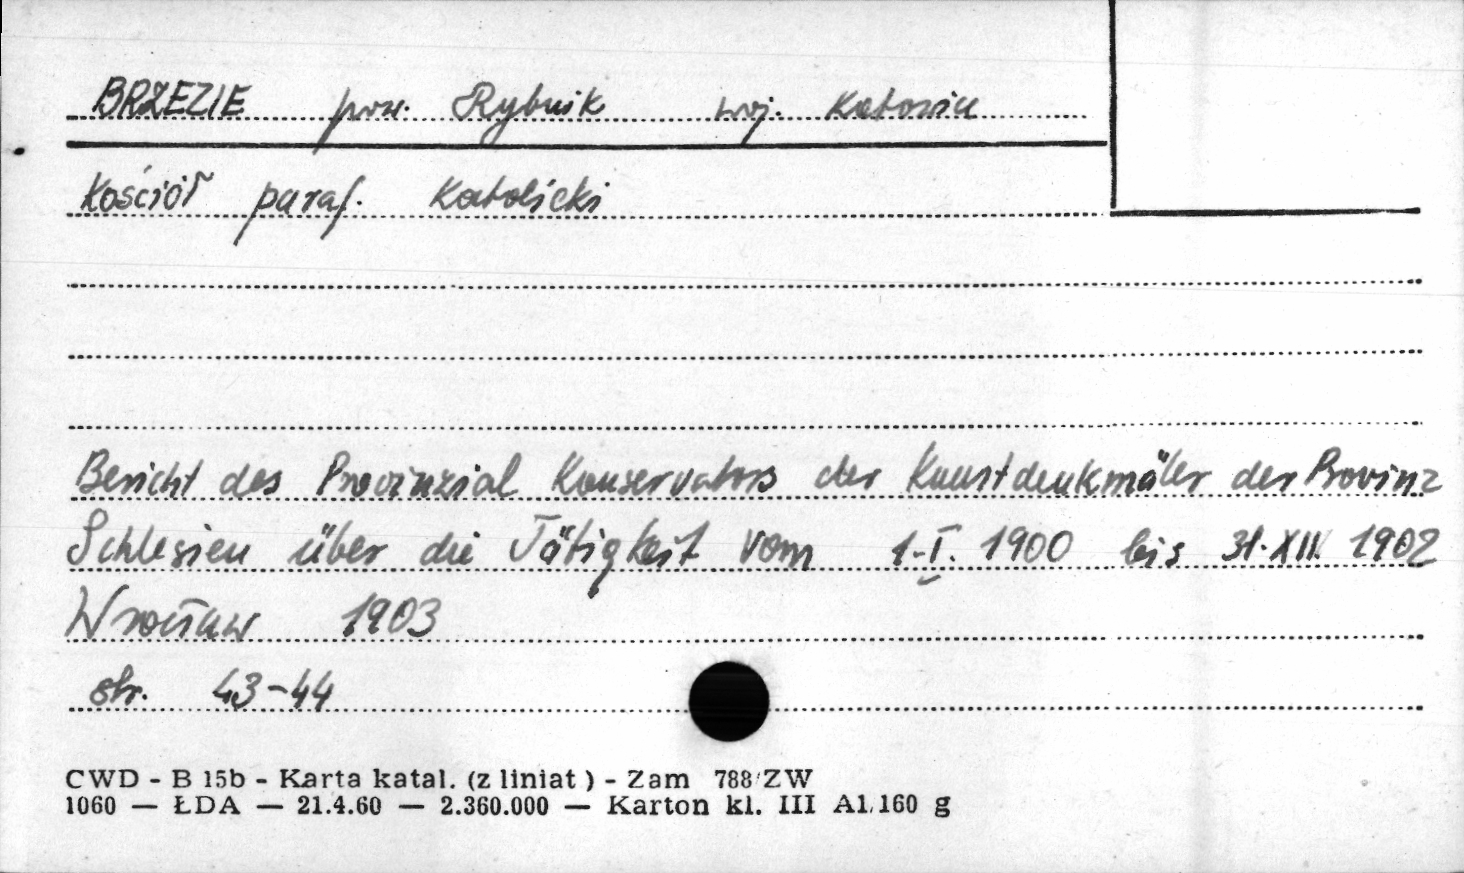 BRZEZIE pow. Rybnik woj. Katowice
Kościół paraf. Katolicki
Bericht des Provinzial Konservators der Kunstdenkmäler der Provinz
Schlesien über die Tätigkeit vom 1.I. 1900 bis 31.XII. 1902
Wrocław 1903
str. 43-44
CWD - B 15b - Karta katal. (z liniat) - Zam 788 ZW
1060 — ŁDA — 21.4.60 — 2.360.000 — Karton kl. III A1, 160 g